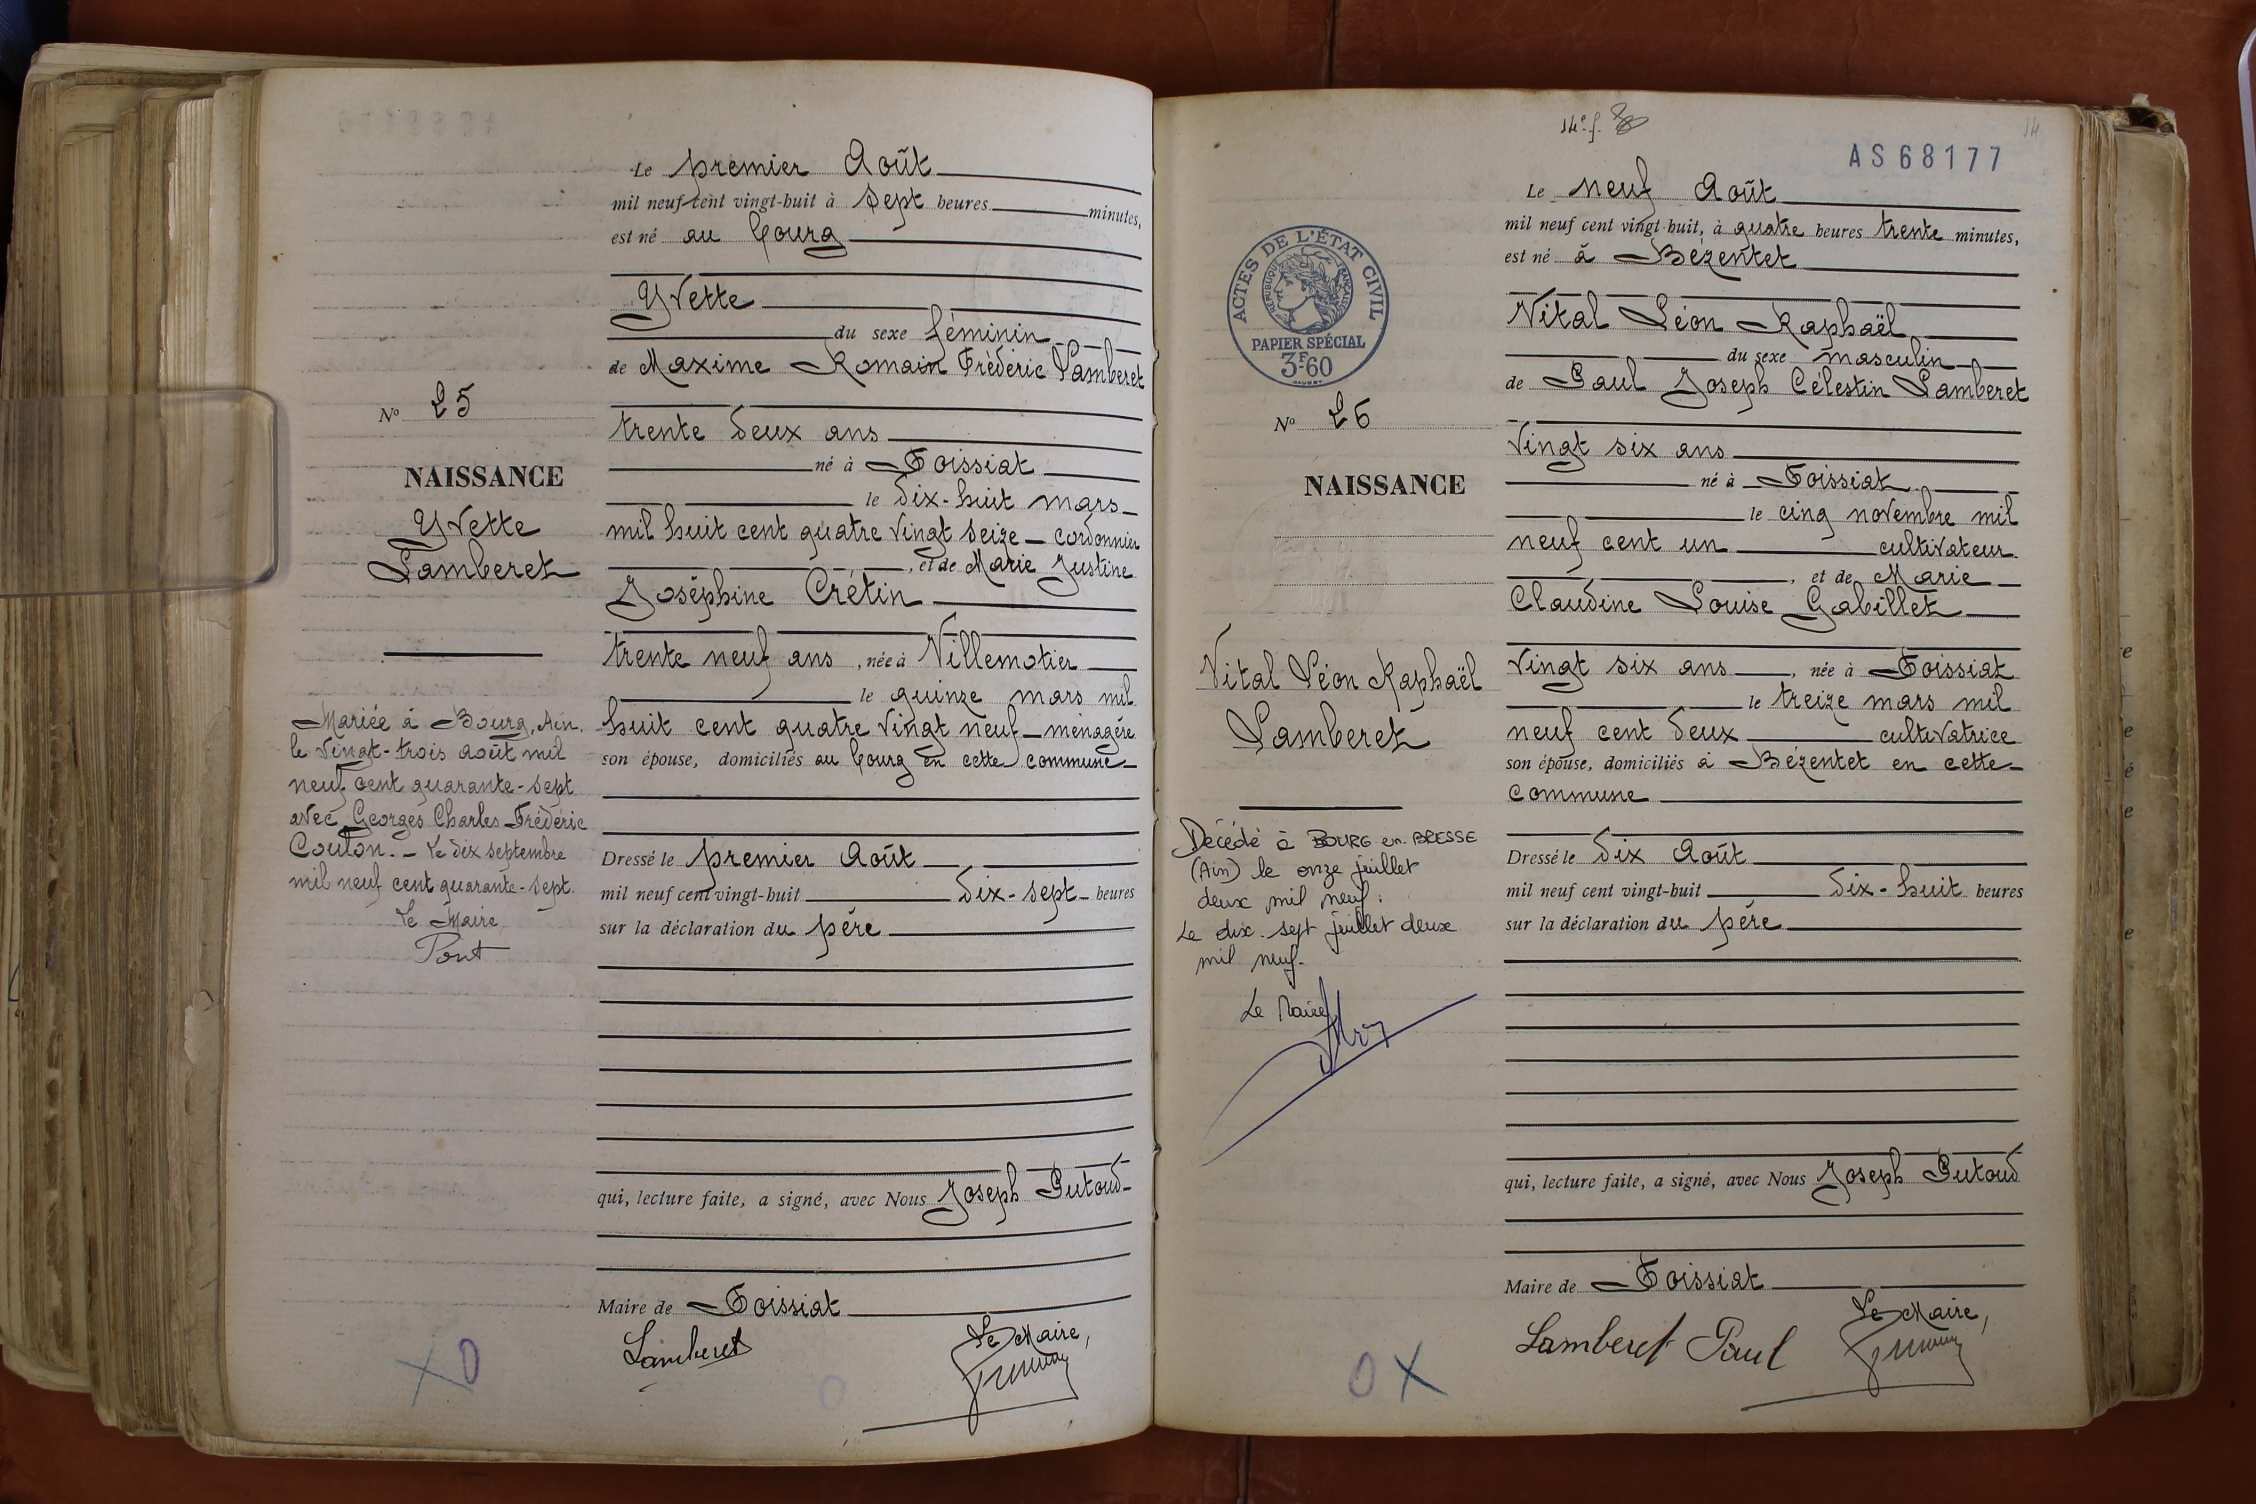 Le premier Août
mil neuf cent vingt-huit à sept heures minutes,
est né au bourg
Yvette
du sexe féminin
de Maxime Romain Frédéric Lamberet
trente deux ans
né à Foissiat
le dix-huit mars
mil huit cent quatre vingt seize cordonnier
, et de Marie Justine
Joséphine Crétin
trente neuf ans , née à Villemotier
le quinze mars mil
huit cent quatre vingt neuf ménagère
son épouse, domiciliés au bourg en cette commune
Dressé le premier Août
mil neuf cent vingt-huit dix-sept heures
sur la déclaration du père
qui, lecture faite, a signé, avec Nous Joseph Putoud
Maire de Foissiat
Lamberet
Le Maire,
No 25
NAISSANCE
Yvette
Lamberet
Mariée à Bourg, Ain.
le vingt-trois août mil
neuf cent quarante-sept
avec Georges Charles Frédéric
Coulon. - Le dix septembre
mil neuf cent quarante-sept.
Le Maire
Pont
14e f.
AS68177
14
Le neuf Août
mil neuf cent vingt-huit, à quatre heures trente minutes,
est né à Bézentet
Vital Léon Raphaël
du sexe masculin
de Paul Joseph Célestin Lamberet
vingt six ans
né à Foissiat
le cinq novembre mil
neuf cent un cultivateur
, et de Marie
Claudine Louise Gabillet
vingt six ans , née à Foissiat
le treize mars mil
neuf cent deux cultivatrice
son épouse, domiciliés à Bézentet en cette
commune
Dressé le dix Août
mil neuf cent vingt-huit dix-huit heures
sur la déclaration du père
qui, lecture faite, a signé, avec Nous Joseph Putoud
Maire de Foissiat
Le Maire,
Lamberet Paul
ACTES DE L'ÉTAT CIVIL
RÉPUBLIQUE FRANÇAISE
PAPIER SPÉCIAL
3F60
No 26
NAISSANCE
Vital Léon Raphaël
Lamberet
Décédé à BOURG en BRESSE
(Ain) le onze juillet
deux mil neuf.
Le dix-sept juillet deux
mil neuf.
Le Maire